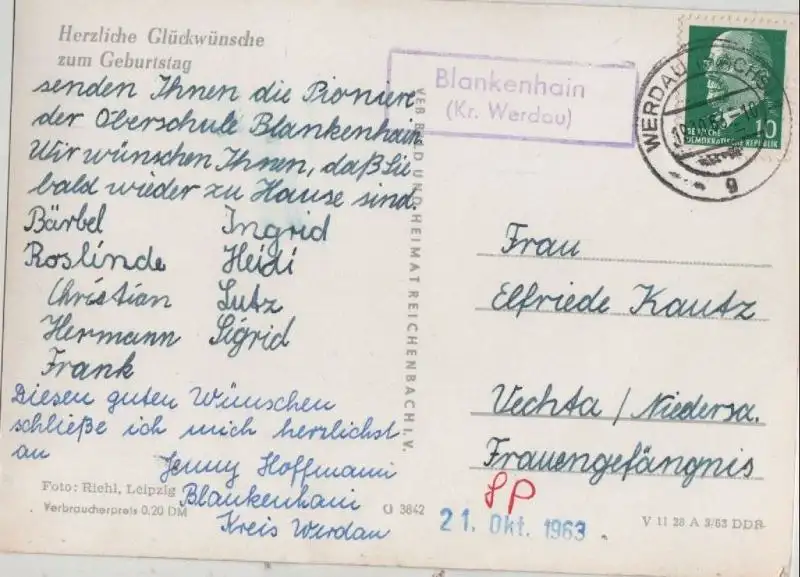 Herzliche Glückwünsche
zum Geburtstag
senden Ihnen die Pioniere
der Oberschule Blankenhain
Wir wünschen Ihnen, daß Sie
bald wieder zu Hause sind.
Bärbel Ingrid
Roslinde Heidi
Christian Lutz
Hermann Sigrid
Frank
Diesen guten Wünschen
schließe ich mich herzlichst
an
Jenny Hoffmann
Blankenhain
Kreis Werdau
Foto: Riehl, Leipzig
Verbraucherpreis 0,20 DM
O 3842
VEB BILD UND HEIMAT REICHENBACH I. V.
Blankenhain
(Kr. Werdau)
WERDAU (SACHS)
g
10
DEUTSCHE
DEMOKRATISCHE REPUBLIK
Frau
Elfriede Kautz
Vechta / Niedersa.
Frauengefängnis
21. Okt. 1963
V 11 28 A 3/63 DDR